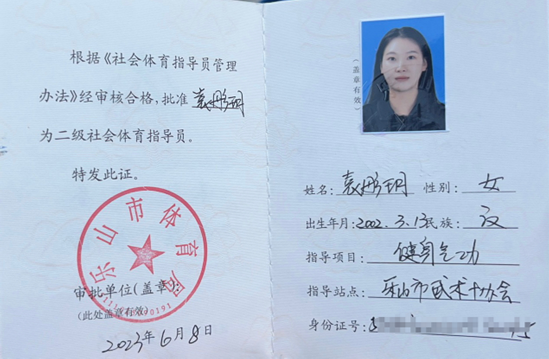 根据《社会体育指导员管理
办法》经审核合格，批准 袁彤玥
为二级社会体育指导员。
特发此证。
乐山市体育局
审批单位（盖章）：
（此处盖章有效）
2023年6月8日
（盖章有效）
姓名：袁彤玥 性别：女
出生年月：2002.3.13 民族：汉
指导项目：健身气功
指导站点：乐山市武术协会
身份证号：